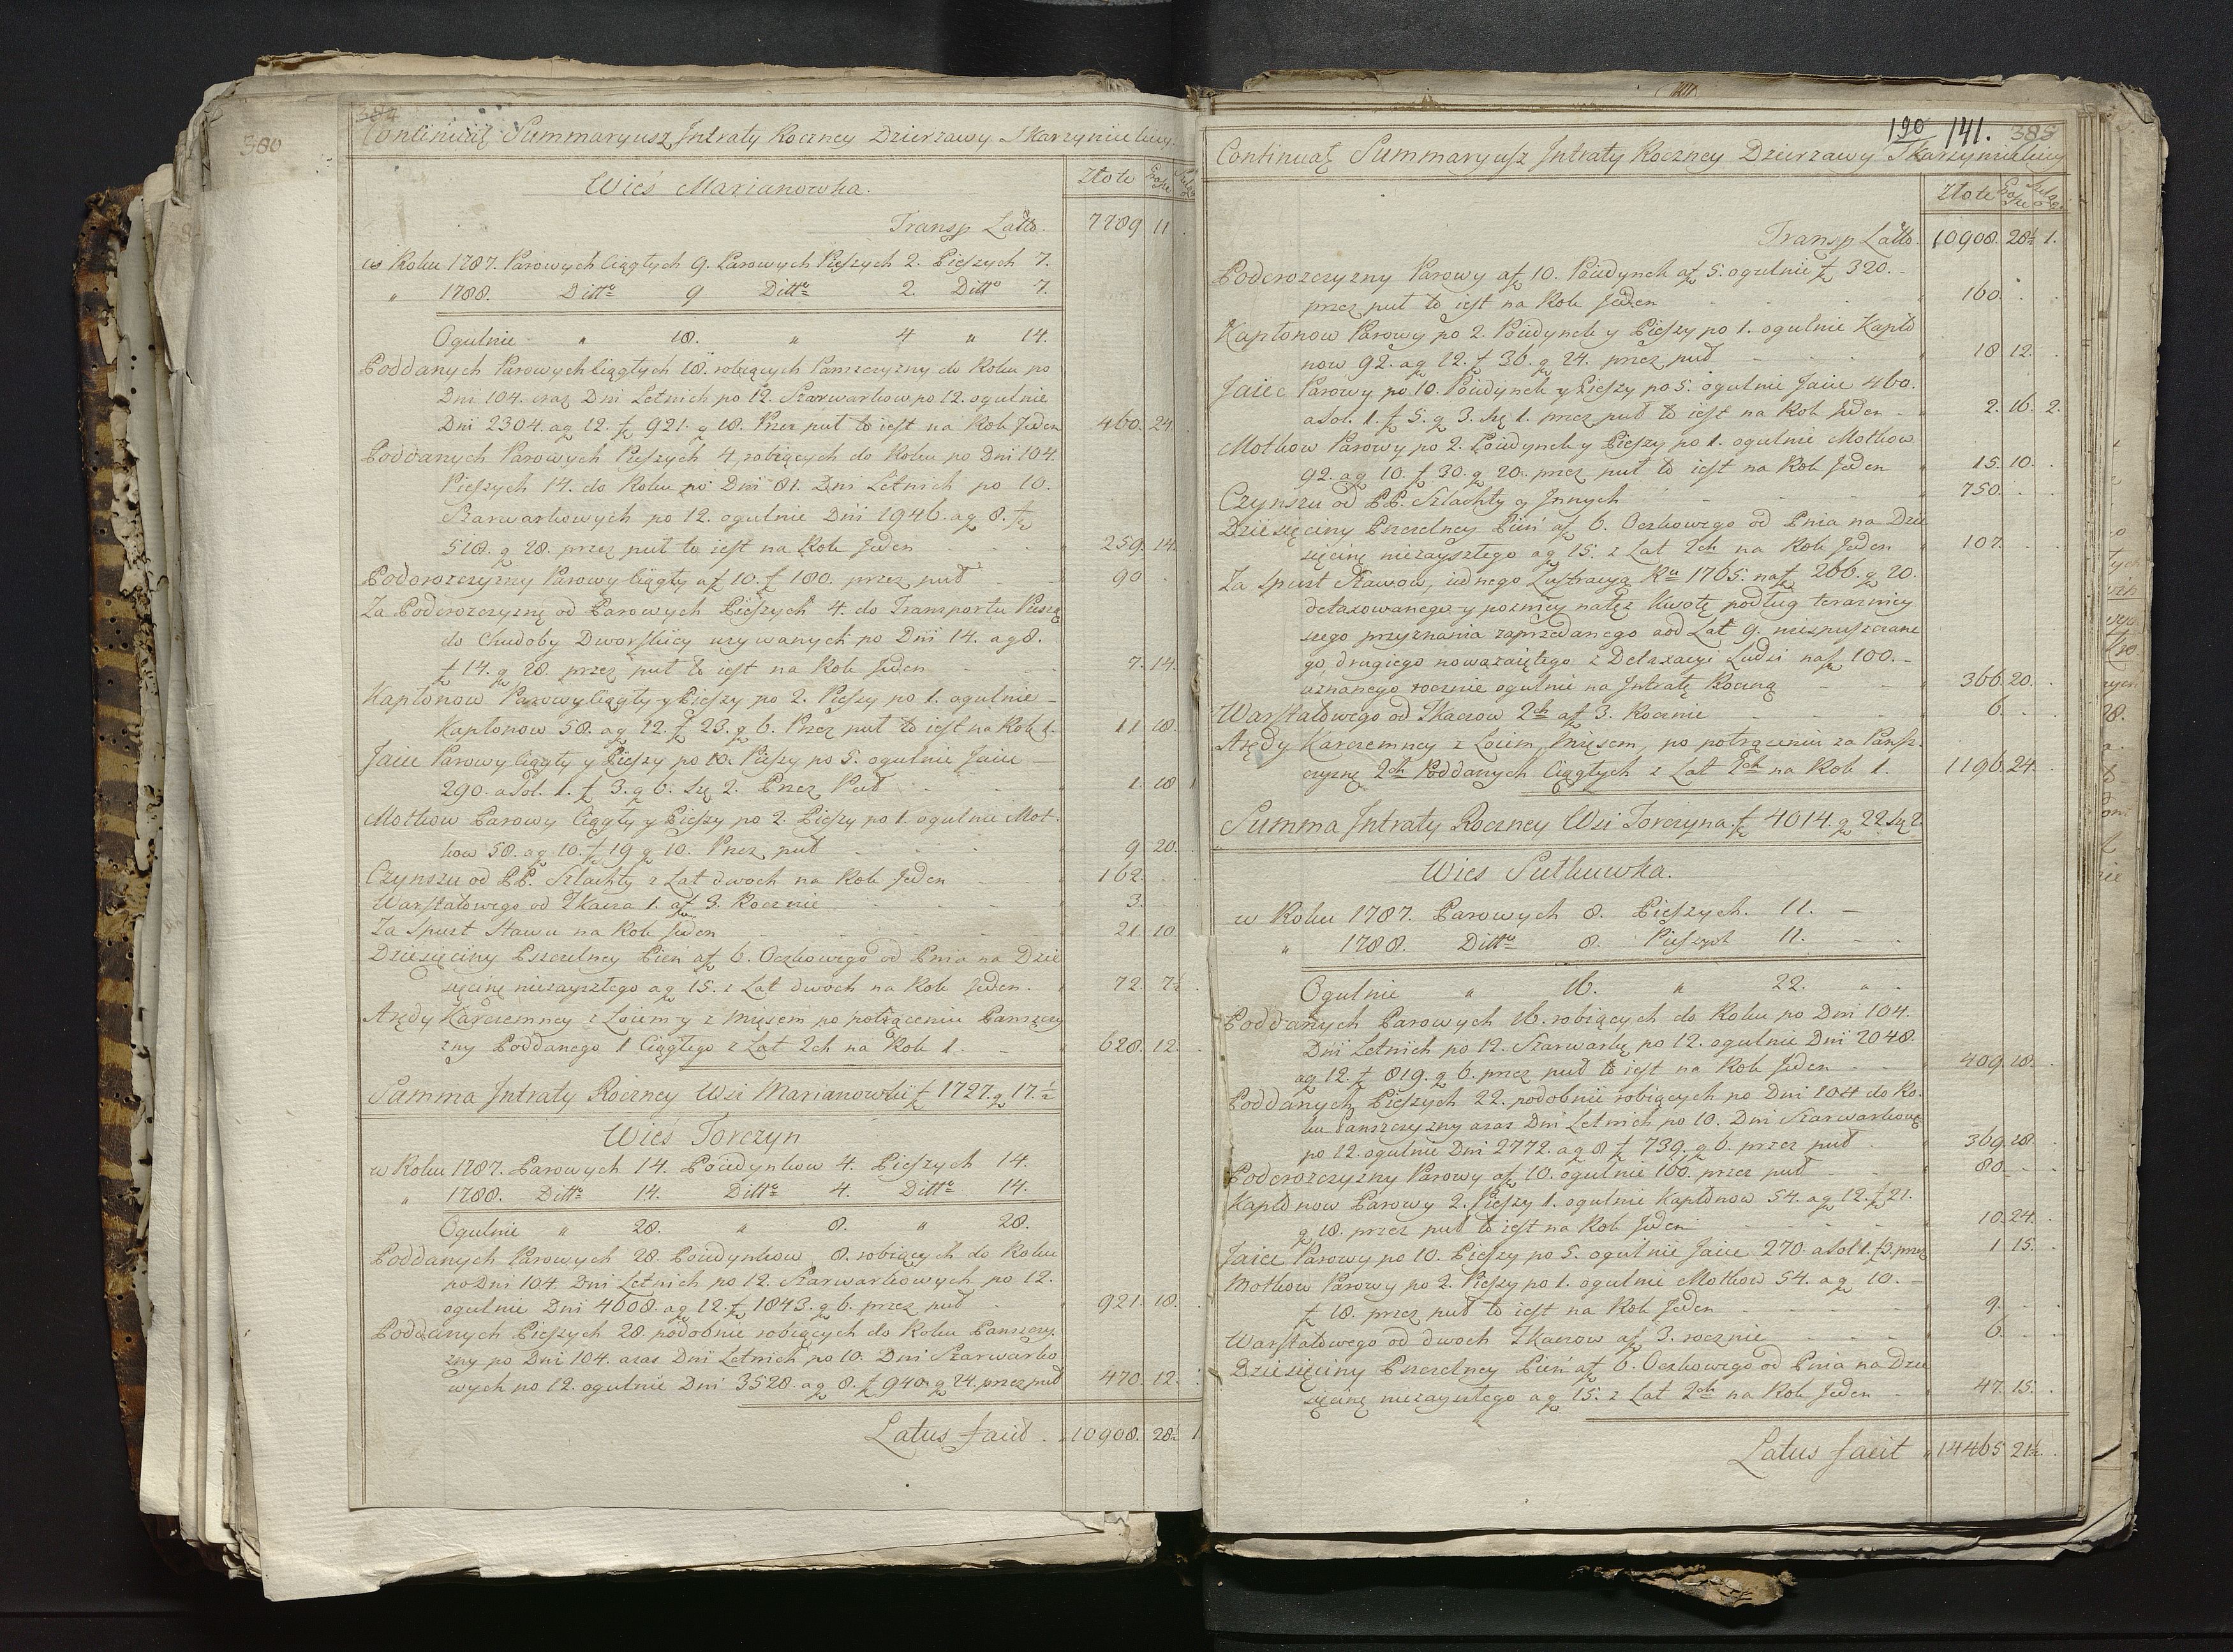 380
384
Continuac Summaryusz Intraty Roczney Dzierzawy Skarzynieckiey
Złote Grosze Szelągi
Wieś Marianowka.
Transp Latto. 7789. 11.
w Roku 1787. Parowych Ciągłych 9. Parowych Pieszych 2. Pieszych 7.
" 1788. Ditto 9 Ditto 2. Ditto 7.
Ogulnie " 18. " 4 " 14.
Poddanych Parowych Ciągłych 18. robiących Panszczyzny do Roku po
Dni 104. oraz Dni Letnich po 12. Szarwarkow po 12. ogulnie
Dni 2304. a g 12. f 921. g 18. Przez puł to iest na Rok Jeden 460. 24.
Poddanych Parowych Pieszych 4, robiących do Roku po Dni 104.
Pieszych 14. do Roku po Dni 81. Dni Letnich po 10.
Szarwarkowych po 12. ogulnie Dni 1946. a g 8. f
518. g 28. przez puł to iest na Rok Jeden 259. 14.
Podorozczyzny Parowy Ciągły a f 10. f 180. przez puł 90
Za Podorozczyznę od Parowych Pieszych 4. do Transportu Paszą
do Chudoby Dworskiey uzywanych po Dni 14. a g 8.
f 14. g 28. przez puł to iest na Rok Jeden 7. 14.
Kapłonow Parowy Ciągły y Pieszy po 2. Pieszy po 1. ogulnie
Kapłonow 58. a g 12. f 23. g 6. Przez puł to iest na Rok 1. 11 18.
Jaiec Parowy Ciągły y Pieszy po 10. Pieszy po 5. ogulnie Jaiec
290. a Sol. 1. f 3. g 6. Szę 2. Przez Puł 1. 18 1
Motkow Parowy Ciągły y Pieszy po 2. Pieszy po 1. ogulnie Mot-
kow 58. a g 10. f 19 g 10. Przez puł 9 20.
Czynszu od PP. Szlachty z Lat dwoch na Rok Jeden 162.
Warstatowego od Tkacza 1. a f 3. Rocznie 3.
Za Spust Stawu na Rok Jeden 21. 10
Dziesięciny Pszczelney Pien a f 6. Oczkowego od Pnia na Dzie
sięcinę niezayszłego a g 15. z Lat dwoch na Rok Jeden. 72. 7½
Arędy Karczemney z Łoiem y z Mięsem po potrąceniu Panszczy
zny Poddanego 1 Ciągłego z Lat 2ch na Rok 1. 628. 12.
Summa Intraty Roczney Wsi Marianowki f 1727. g 17.½
Wieś Torczyn
w Roku 1787. Parowych 14. Poiedynkow 4. Pieszych 14.
" 1788. Ditto 14. Ditto 4. Ditto 14.
Ogulnie " 28. " 8. " 28.
Poddanych Parowych 28. Poiedynkow 8. robiących do Roku
po Dni 104. Dni Letnich po 12. Szarwarkowych po 12.
ogulnie Dni 4608. a g 12. f 1843. g 6. przez puł 921. 18.
Poddanych Pieszych 28. podobnie robiących do Roku Panszczy
zny po Dni 104. oraz Dni Letnich po 10. Dni Szarwarko
wych po 12. ogulnie Dni 3528. a g 8. f 940. g 24. przez puł 470. 12.
Latus facit 10908. 28½ 1
190 141. 385
Continuac Summaryusz Intraty Roczney Dzierzawy Skarzynieckiey
Złote Grosze Szelągi
Transp Latto. 10908. 28½ 1.
Podorozczyzny Parowy a f 10. Poiedynek a f 5. ogulnie f 320.
przez puł to iest na Rok Jeden 160.
Kapłonow Parowy po 2. Poiedynek y Pieszy po 1. ogulnie Kapło
now 92. a g 12. f 36. g 24. przez puł 18 12.
Jaiec Parowy po 10. Poiedynek y Pieszy po 5. ogulnie Jaiec 460.
a Sol. 1. f 5. g 3. Szę 1. przez puł to iest na Rok Jeden 2. 16. 2.
Motkow Parowy po 2. Poiedynek y Pieszy po 1. ogulnie Motkow
92. a g 10. f 30. g 20. przez puł to iest na Rok Jeden 15. 10.
Czynszu od PP. Szlachty y Innych 750.
Dziesięciny Pszczelney Pień a f 6. Oczkowego od Pnia na Dzie
sięcinę niezayszłego a g 15. z Lat 2ch na Rok Jeden 107.
Za spust Stawow, iednego Lustracyą Ru 1765. na f 266. g 20.
detaxowanego y pozniey natęz Kwotę podług terazniey
szego przyznania zaprzedanego a od Lat 9. niespuszczane
go, drugiego nowozaiętego z Detaxacyi Ludzi na f 100.
uznanego rocznie ogulnie na Intratę Roczną 366. 20.
Warstatowego od Tkaczow 2ch a f 3. Rocznie 6.
Arędy Karczemney z Łoiem, Mięsem, po potrąceniu za Pansz-
czyznę 2ch Poddanych Ciągłych z Lat 2ch na Rok 1. 1196. 24.
Summa Intraty Roczney Wsi Torczyna f 4014. g 22 Szę 2.
Wieś Sutkuwka.
w Roku 1787. Parowych 8. Pieszych. 11.
" 1788. Ditto 8. Pieszych 11.
Ogulnie " 16. " 22. "
Poddanych Parowych 16. robiących do Roku po Dni 104.
Dni Letnich po 12. Szarwarkę po 12. ogulnie Dni 2048.
a g 12. f 819. g 6. przez puł to iest na Rok Jeden 409. 18.
Poddanych Pieszych 22. podobnie robiących po Dni 104 do Ro-
ku Panszczyzny oraz Dni Letnich po 10. Dni Szarwarkowę
po 12. ogulnie Dni 2772. a g 8 f 739. g 6. przez puł 369. 18.
Podorozczyzny Parowy a f 10. ogulnie 160. przez puł 80.
Kapłonow Parowy 2. Pieszy 1. ogulnie Kapłonow 54. a g 12. f 21.
g 18. przez puł to iest na Rok Jeden 10. 24.
Jaiec Parowy po 10. Pieszy po 5. ogulnie Jaiec 270. a Sol 1. f 3. przez 1 15.
Motkow Parowy po 2. Pieszy po 1. ogulnie Motkow 54. a g 10.
f 18. przez puł to iest na Rok Jeden 9.
Warstatowego od dwoch Tkaczow a f 3. rocznie 6.
Dziesięciny Pszczelney Pień a f 6. Oczkowego od Pnia na Dzie
sięcinę niezayszłego a g 15. z Lat 2ch na Rok Jeden 47. 15.
Latus facit 14465 21½